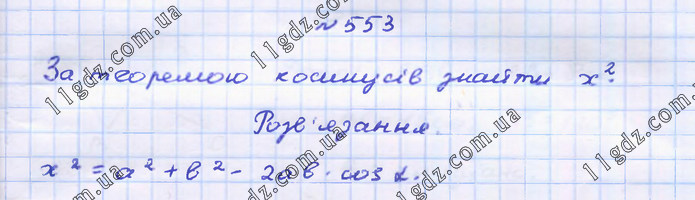 № 553
За теоремою косинусів знайти x².
Розв'язання.
x² = a² + b² - 2ab · cos α.
11gdz.com.ua
11gdz.com.ua
11gdz.com.ua
11gdz.com.ua
11gdz.com.ua